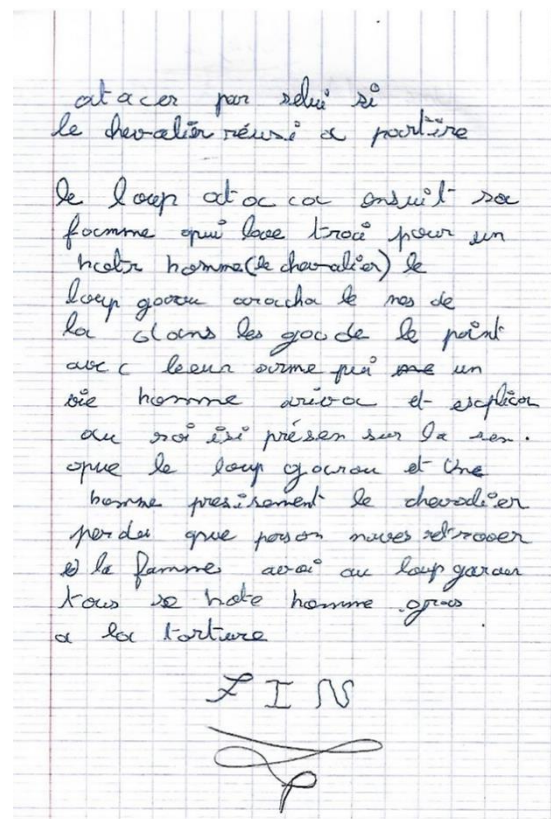 atacer par selui si
le chevalier réusi a partire
le loup ataca ensuit sa
famme qui lave troi pour un
hotr homme (le chevalier) le
loup garou aracha le nes de
la dans les gade le point
avec leeur arme pui un
vie homme ariva et esplica
au roi isi présen sur la sen.
que le loup garou et Une
homme presisement le chevalier
perdu que person naves retrover
e la famme avoi au loup garou
tous se hote homme gras
a la torture
FIN